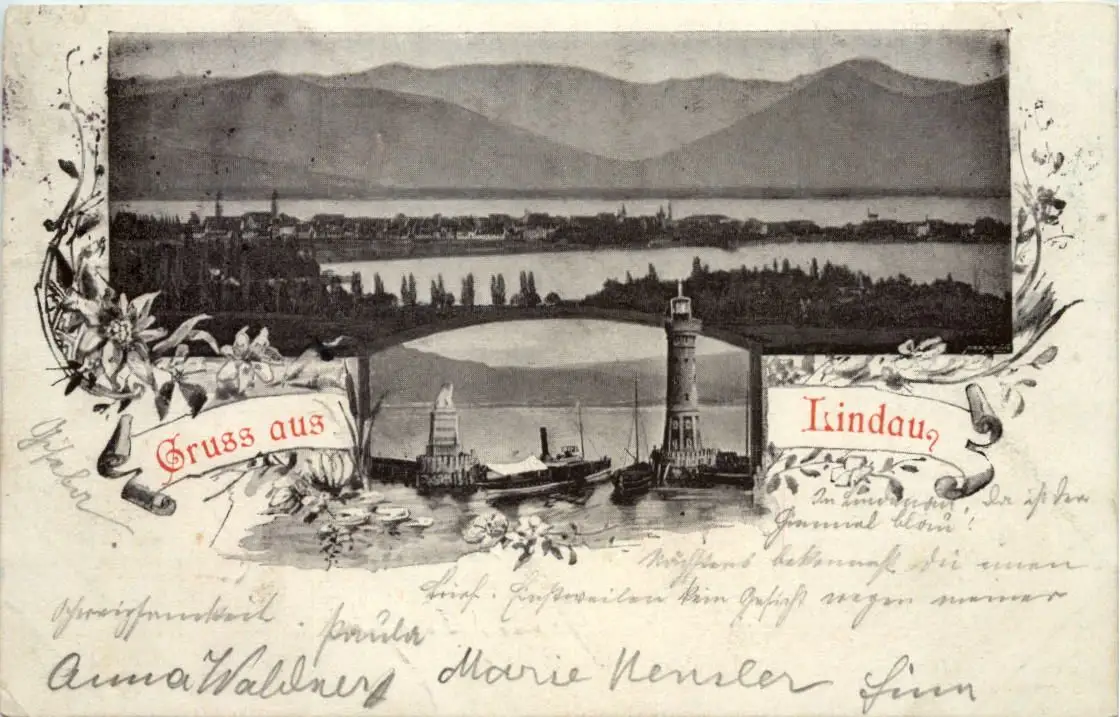 Gruss aus
Lindau,
In Lindau, da ist der
Himmel blau!
Nächstens bekommst du einen
Brief. Einstweilen kein Gesicht wegen meiner
Paula
Anna Waldner
Marie